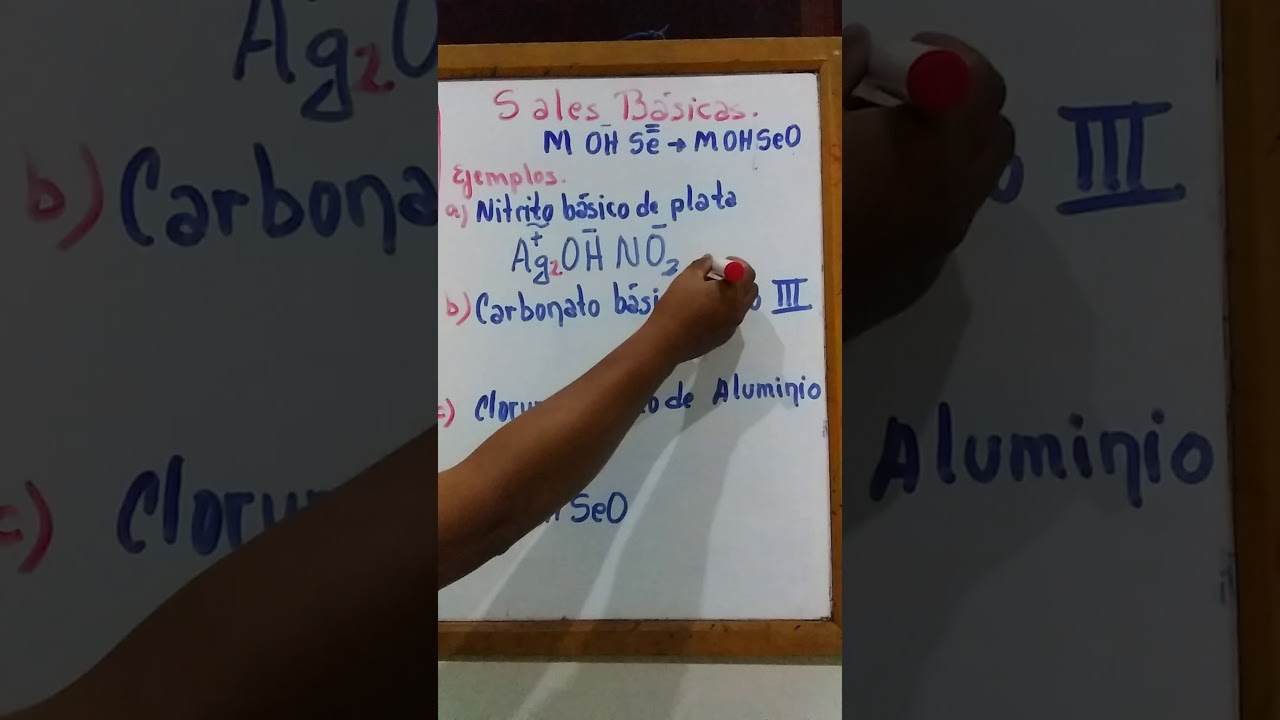 Sales Básicas.
M OH Se → MOHSeO
Ejemplos.
a) Nitrito básico de plata
Ag2OH NO2
b) Carbonato III
c) de Aluminio
SeO